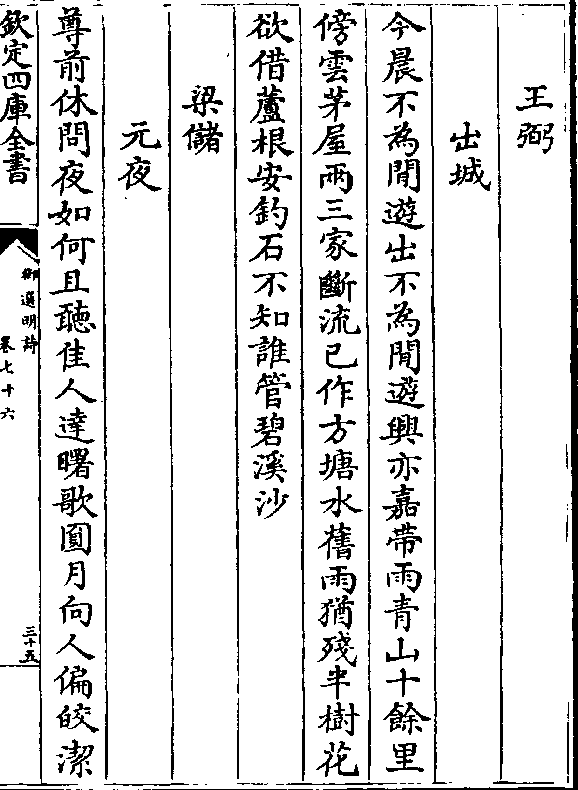 王弼
出城
今晨不為閒遊出不為閒遊興亦嘉帶雨青山十餘里
傍雲茅屋兩三家斷流已作方塘水舊雨猶殘半樹花
欲借蘆根安釣石不知誰管碧溪沙
梁儲
元夜
尊前休問夜如何且聽佳人達曙歌圓月向人偏皎潔
欽定四庫全書
御選明詩
卷七十六
三十五